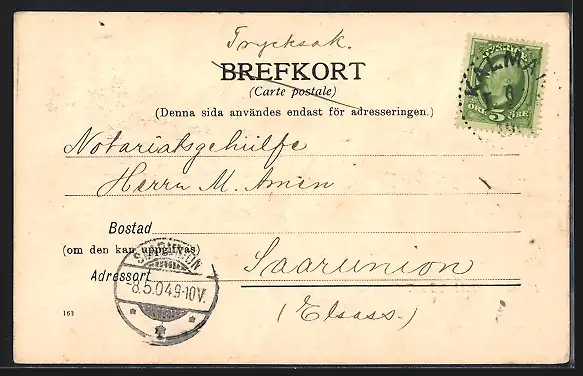 Trycksak.
BREFKORT
(Carte postale)
(Denna sida användes endast för adresseringen.)
KALMAR
6
5 ÖRE
Notariatsgehülfe
Herrn M. Amen
Bostad
(om den kan uppgifvas)
SAARUNION
Saarunion
Adressort
-8.5.04.9-10V.
(Elsass.)
163